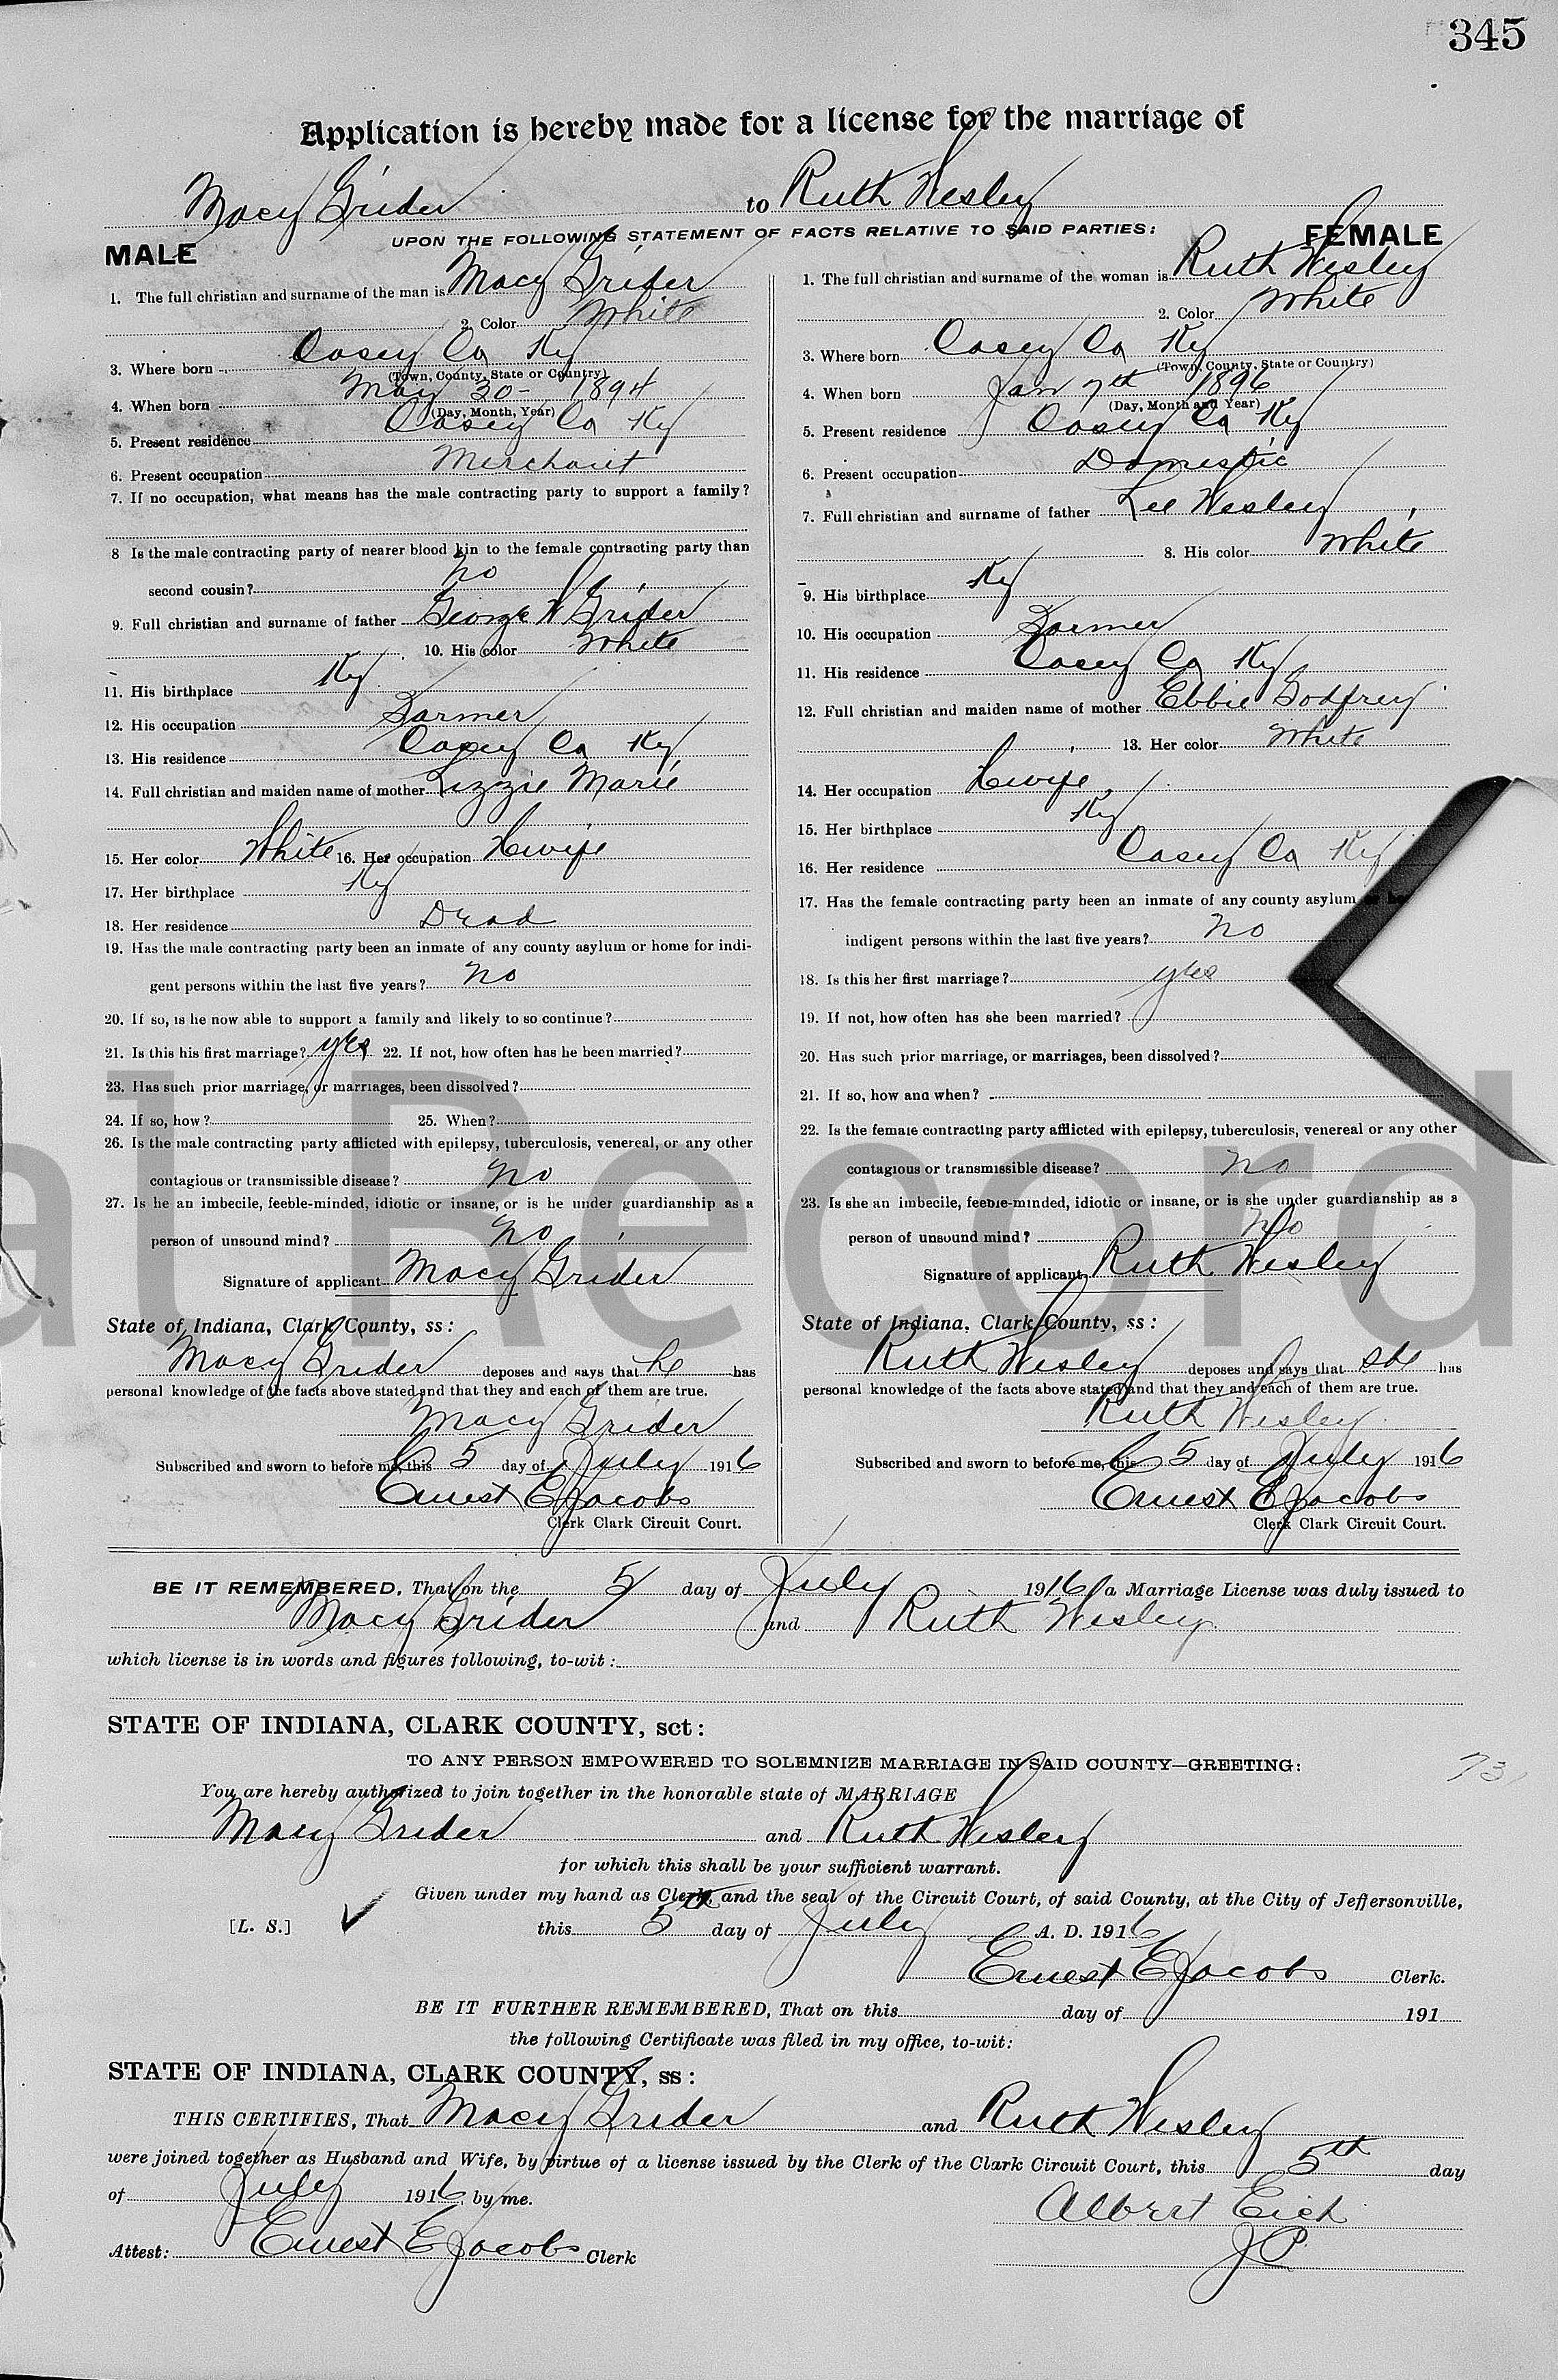 345
Application is hereby made for a license for the marriage of
Macy Grider to Ruth Wesley
UPON THE FOLLOWING STATEMENT OF FACTS RELATIVE TO SAID PARTIES:
MALE
1. The full christian and surname of the man is Macy Grider
2. Color White
3. Where born Casey Co Ky
(Town, County, State or Country)
4. When born May 30 - 1894
(Day, Month, Year)
5. Present residence Casey Co Ky
6. Present occupation Merchant
7. If no occupation, what means has the male contracting party to support a family?
8 Is the male contracting party of nearer blood kin to the female contracting party than
second cousin? No
9. Full christian and surname of father George W Grider
10. His color White
11. His birthplace Ky
12. His occupation Farmer
13. His residence Casey Co Ky
14. Full christian and maiden name of mother Lizzie Marie
15. Her color White 16. Her occupation Hwife
17. Her birthplace Ky
18. Her residence Dead
19. Has the male contracting party been an inmate of any county asylum or home for indi-
gent persons within the last five years? No
20. If so, is he now able to support a family and likely to so continue?
21. Is this his first marriage? yes 22. If not, how often has he been married?
23. Has such prior marriage, or marriages, been dissolved?
24. If so, how? 25. When?
26. Is the male contracting party afflicted with epilepsy, tuberculosis, venereal, or any other
contagious or transmissible disease? No
27. Is he an imbecile, feeble-minded, idiotic or insane, or is he under guardianship as a
person of unsound mind? No
Signature of applicant Macy Grider
State of Indiana, Clark County, ss:
Macy Grider deposes and says that he has
personal knowledge of the facts above stated and that they and each of them are true.
Macy Grider
Subscribed and sworn to before me, this 5 day of July 1916
Ernest E Jacobs
Clerk Clark Circuit Court.
FEMALE
1. The full christian and surname of the woman is Ruth Wesley
2. Color White
3. Where born Casey Co Ky
(Town, County, State or Country)
4. When born Jan 7th 1896
(Day, Month and Year)
5. Present residence Casey Co Ky
6. Present occupation Domestic
7. Full christian and surname of father Lee Wesley
8. His color White
9. His birthplace Ky
10. His occupation Farmer
11. His residence Casey Co Ky
12. Full christian and maiden name of mother Ebbie Godfrey
13. Her color White
14. Her occupation Hwife
15. Her birthplace Ky
16. Her residence Casey Co Ky
17. Has the female contracting party been an inmate of any county asylum
indigent persons within the last five years? No
18. Is this her first marriage? yes
19. If not, how often has she been married?
20. Has such prior marriage, or marriages, been dissolved?
21. If so, how and when?
22. Is the female contracting party afflicted with epilepsy, tuberculosis, venereal or any other
contagious or transmissible disease? No
23. Is she an imbecile, feeble-minded, idiotic or insane, or is she under guardianship as a
person of unsound mind? No
Signature of applicant Ruth Wesley
State of Indiana, Clark County, ss:
Ruth Wesley deposes and says that she has
personal knowledge of the facts above stated and that they and each of them are true.
Ruth Wesley
Subscribed and sworn to before me, this 5 day of July 1916
Ernest E Jacobs
Clerk Clark Circuit Court.
al Record
BE IT REMEMBERED, That on the 5 day of July 1916 a Marriage License was duly issued to
Macy Grider and Ruth Wesley
which license is in words and figures following, to-wit:
STATE OF INDIANA, CLARK COUNTY, sct:
TO ANY PERSON EMPOWERED TO SOLEMNIZE MARRIAGE IN SAID COUNTY—GREETING:
73
You are hereby authorized to join together in the honorable state of MARRIAGE
Macy Grider and Ruth Wesley
for which this shall be your sufficient warrant.
Given under my hand as Clerk, and the seal of the Circuit Court, of said County, at the City of Jeffersonville,
[L. S.] ✓ this 5th day of July A. D. 1916
Ernest E Jacobs Clerk.
BE IT FURTHER REMEMBERED, That on this day of 191
the following Certificate was filed in my office, to-wit:
STATE OF INDIANA, CLARK COUNTY, ss:
THIS CERTIFIES, That Macy Grider and Ruth Wesley
were joined together as Husband and Wife, by virtue of a license issued by the Clerk of the Clark Circuit Court, this 5th day
of July 1916, by me.
Albert Eich
Attest: Ernest E Jacobs Clerk
J P